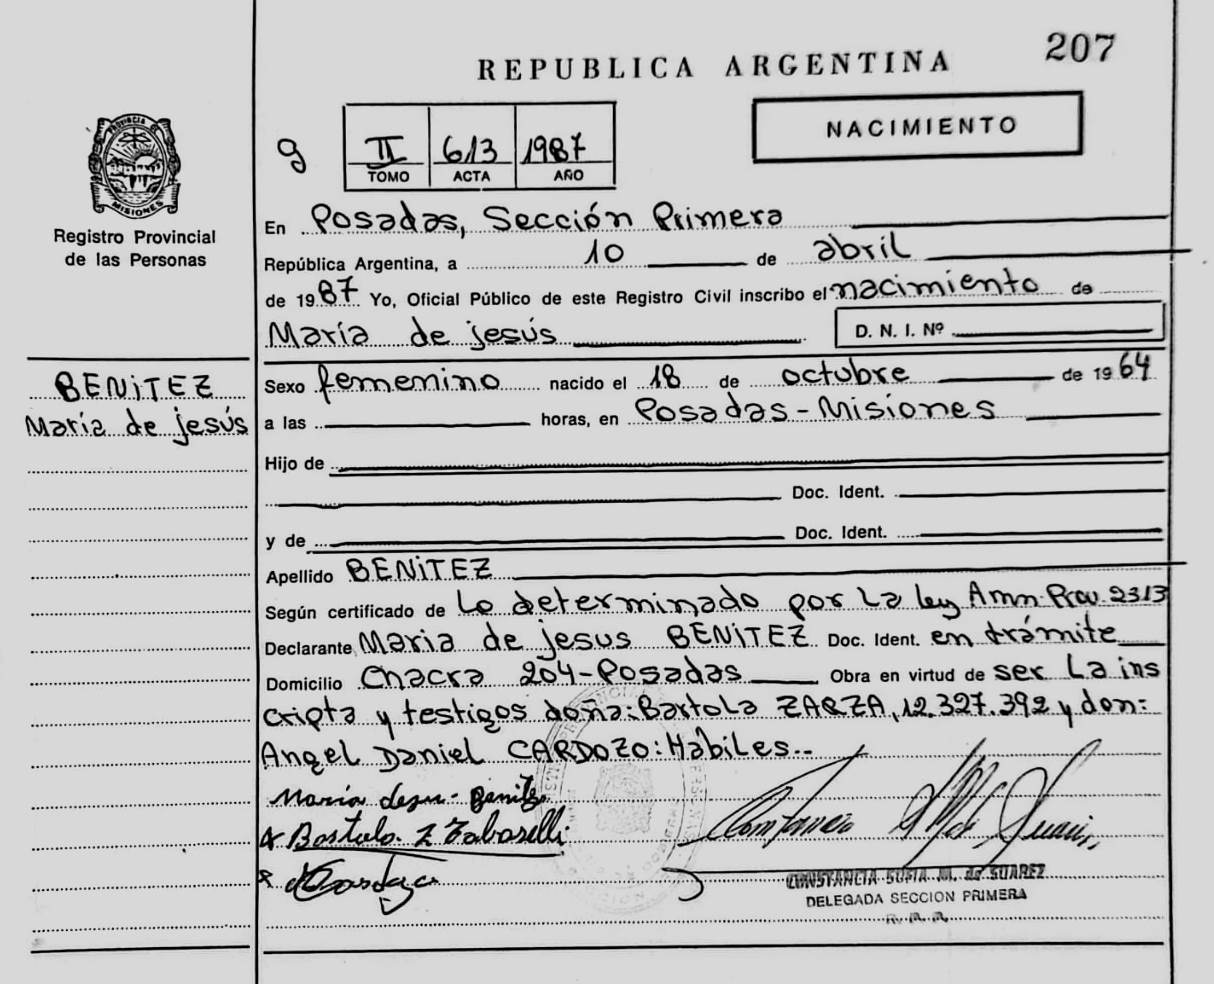 207
REPUBLICA ARGENTINA
NACIMIENTO
g
II 613 1987
TOMO ACTA AÑO
PROVINCIA DE
MISIONES
Registro Provincial
de las Personas
En Posadas, Sección Primera
República Argentina, a 10 de abril
de 1987 Yo, Oficial Público de este Registro Civil inscribo el nacimiento de
María de jesús D. N. I. Nº
BENiTEZ
María de jesús
Sexo femenino nacido el 18 de octubre de 1964
a las horas, en Posadas - Misiones
Hijo de
Doc. Ident.
y de Doc. Ident.
Apellido BENiTEZ
Según certificado de Lo determinado por La ley Amn. Prov. 2313
Declarante Maria de jesus BENiTEZ Doc. Ident. en trámite
Domicilio Chacra 204-Posadas Obra en virtud de ser La ins
cripta y testigos doña: Bartola ZARZA, 12.327.392 y don:
Angel Daniel CARDOZO: Hábiles..
María Benitez
Bartola Z
CONSTANCIA SOFIA M. de SUAREZ
DELEGADA SECCION PRIMERA